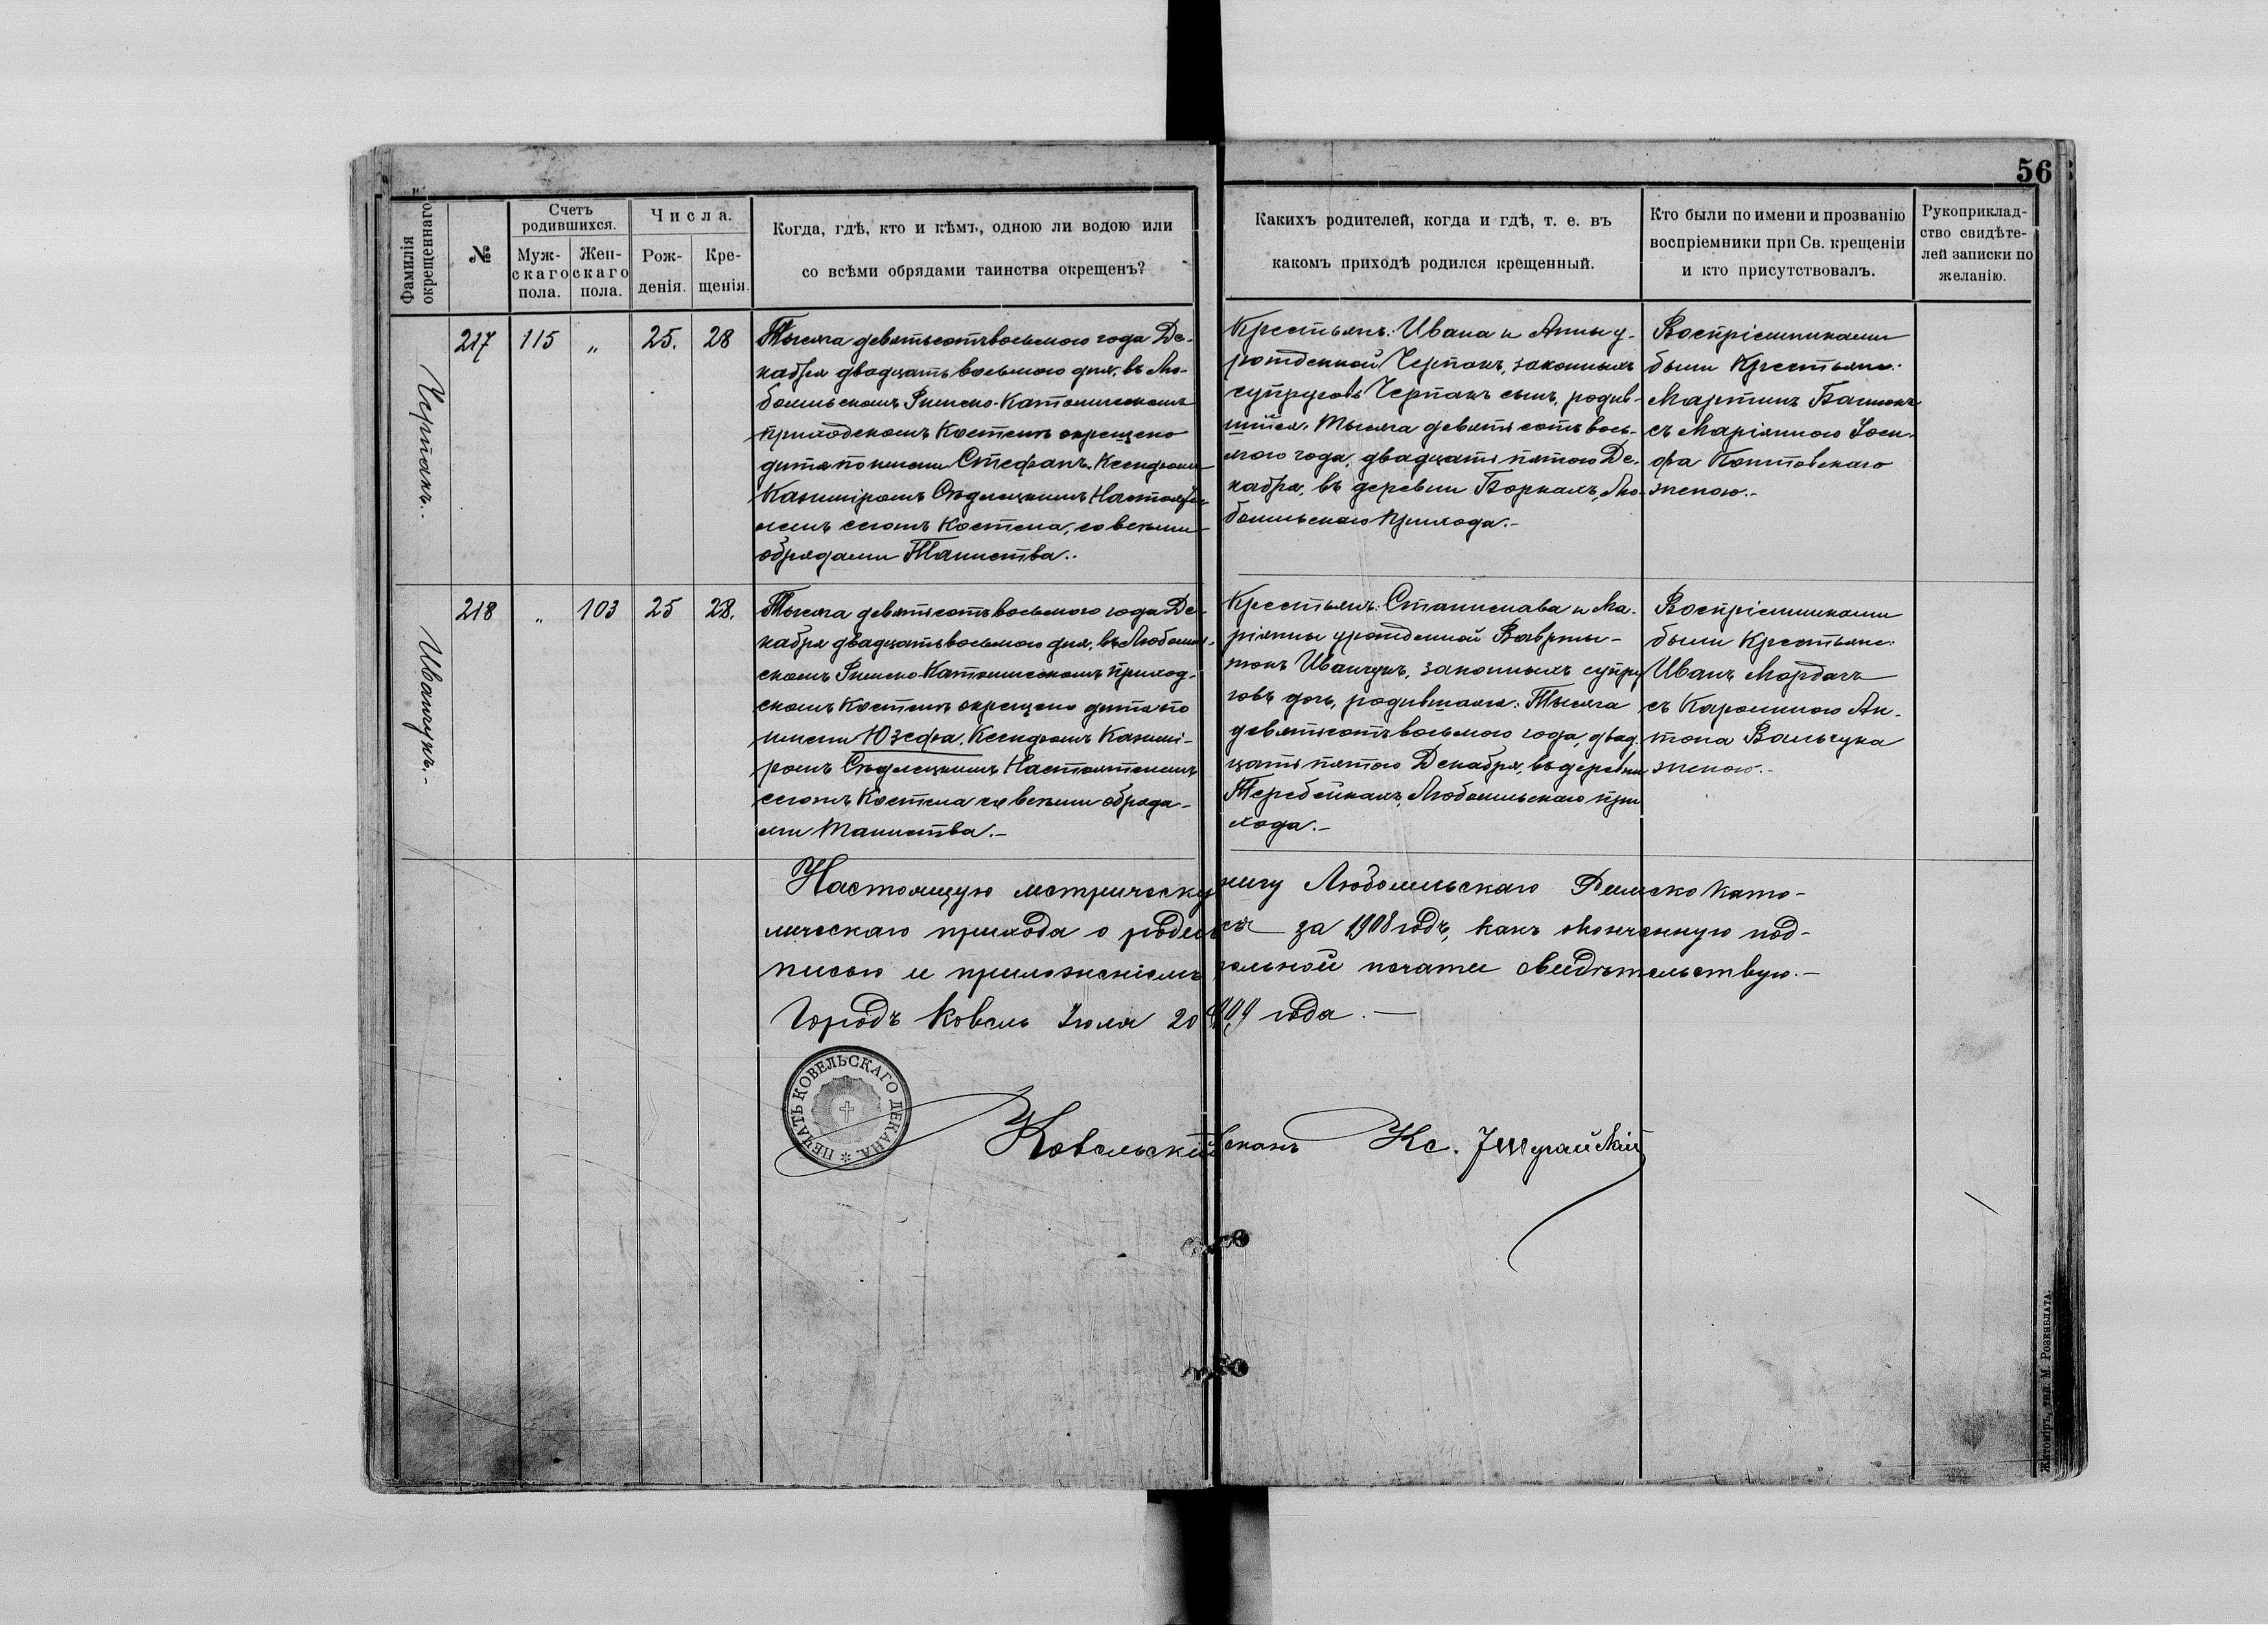 56
Фамилія окрещеннаго
№
Счетъ родившихся.
Муж-
скаго
пола.
Жен-
скаго
пола.
Числа.
Рож-
денія.
Кре-
щенія.
Когда, гдѣ, кто и кѣмъ, одною ли водою или
со всѣми обрядами таинства окрещенъ?
Какихъ родителей, когда и гдѣ, т. е. въ
какомъ приходѣ родился крещенный.
Кто были по имени и прозванію
воспріемники при Св. крещеніи
и кто присутствовалъ.
Рукоприклад-
ство свидѣте-
лей записки по
желанію.
Черпакъ.-
217
115
„
25.
28
Тысяча девятьсотъ восьмого года Де-
кабря двадцать восьмого дня, въ Лю-
бомльскомъ Римско-Католическомъ
приходскомъ Костелѣ окрещено
дитя по имени Стефанъ, Ксендзомъ
Казиміромъ Сѣдлецкимъ Настояте-
лемъ сегожъ Костела, со всѣми
обрядами Таинства.-
Крестьянъ: Ивана и Анны у-
рожденной Черпакъ, законныхъ
супруговъ Черпакъ сынъ, родив-
шійся: Тысяча девятьсотъ вось-
мого года, двадцать пятого Де-
кабря, въ деревни Боркахъ, Лю-
бомльскаго прихода.-
Воспріемниками
были Крестьяне:
Мартинъ
съ Маріанною Іоси-
фа
женою.-
Иванчукъ.-
218
„
103
25
28.
Тысяча девятьсотъ восьмого года Де-
кабря двадцать восьмого дня, въ Любомль-
скомъ Римско-Католическомъ приход-
скомъ Костелѣ окрещено дитя по
имени Юзефа, Ксендзомъ Казимі-
ромъ Сѣдлецкимъ Настоятелемъ
сегожъ Костела со всѣми обряда-
ми Таинства.-
Крестьянъ: Станислава и Ма-
ріянны урожденной
Иванчукъ, законныхъ супру
говъ дочь, родившаяся: Тысяча
девятьсотъ восьмого года, двад-
цать пятого Декабря, въ деревни
Теребейкахъ, Любомльскаго при
хода.-
Воспріемниками
были Крестьяне:
Иванъ Мордачъ
съ Каролиною Ан-
тона Вальчука
женою.-
Настоящую метрическу нигу Любомльскаго Римско Като-
лическаго прихода о за 1908 годъ, какъ оконченную под-
писью и приложеніемъ печати свидѣтельствую.-
Городъ Ковель Іюля 20 1909 года.-
ПЕЧАТЬ КОВЕЛЬСКАГО ДЕКАНА.
Ковельскій Деканъ Кс.
Житоміръ, тип. М. Розенблата.